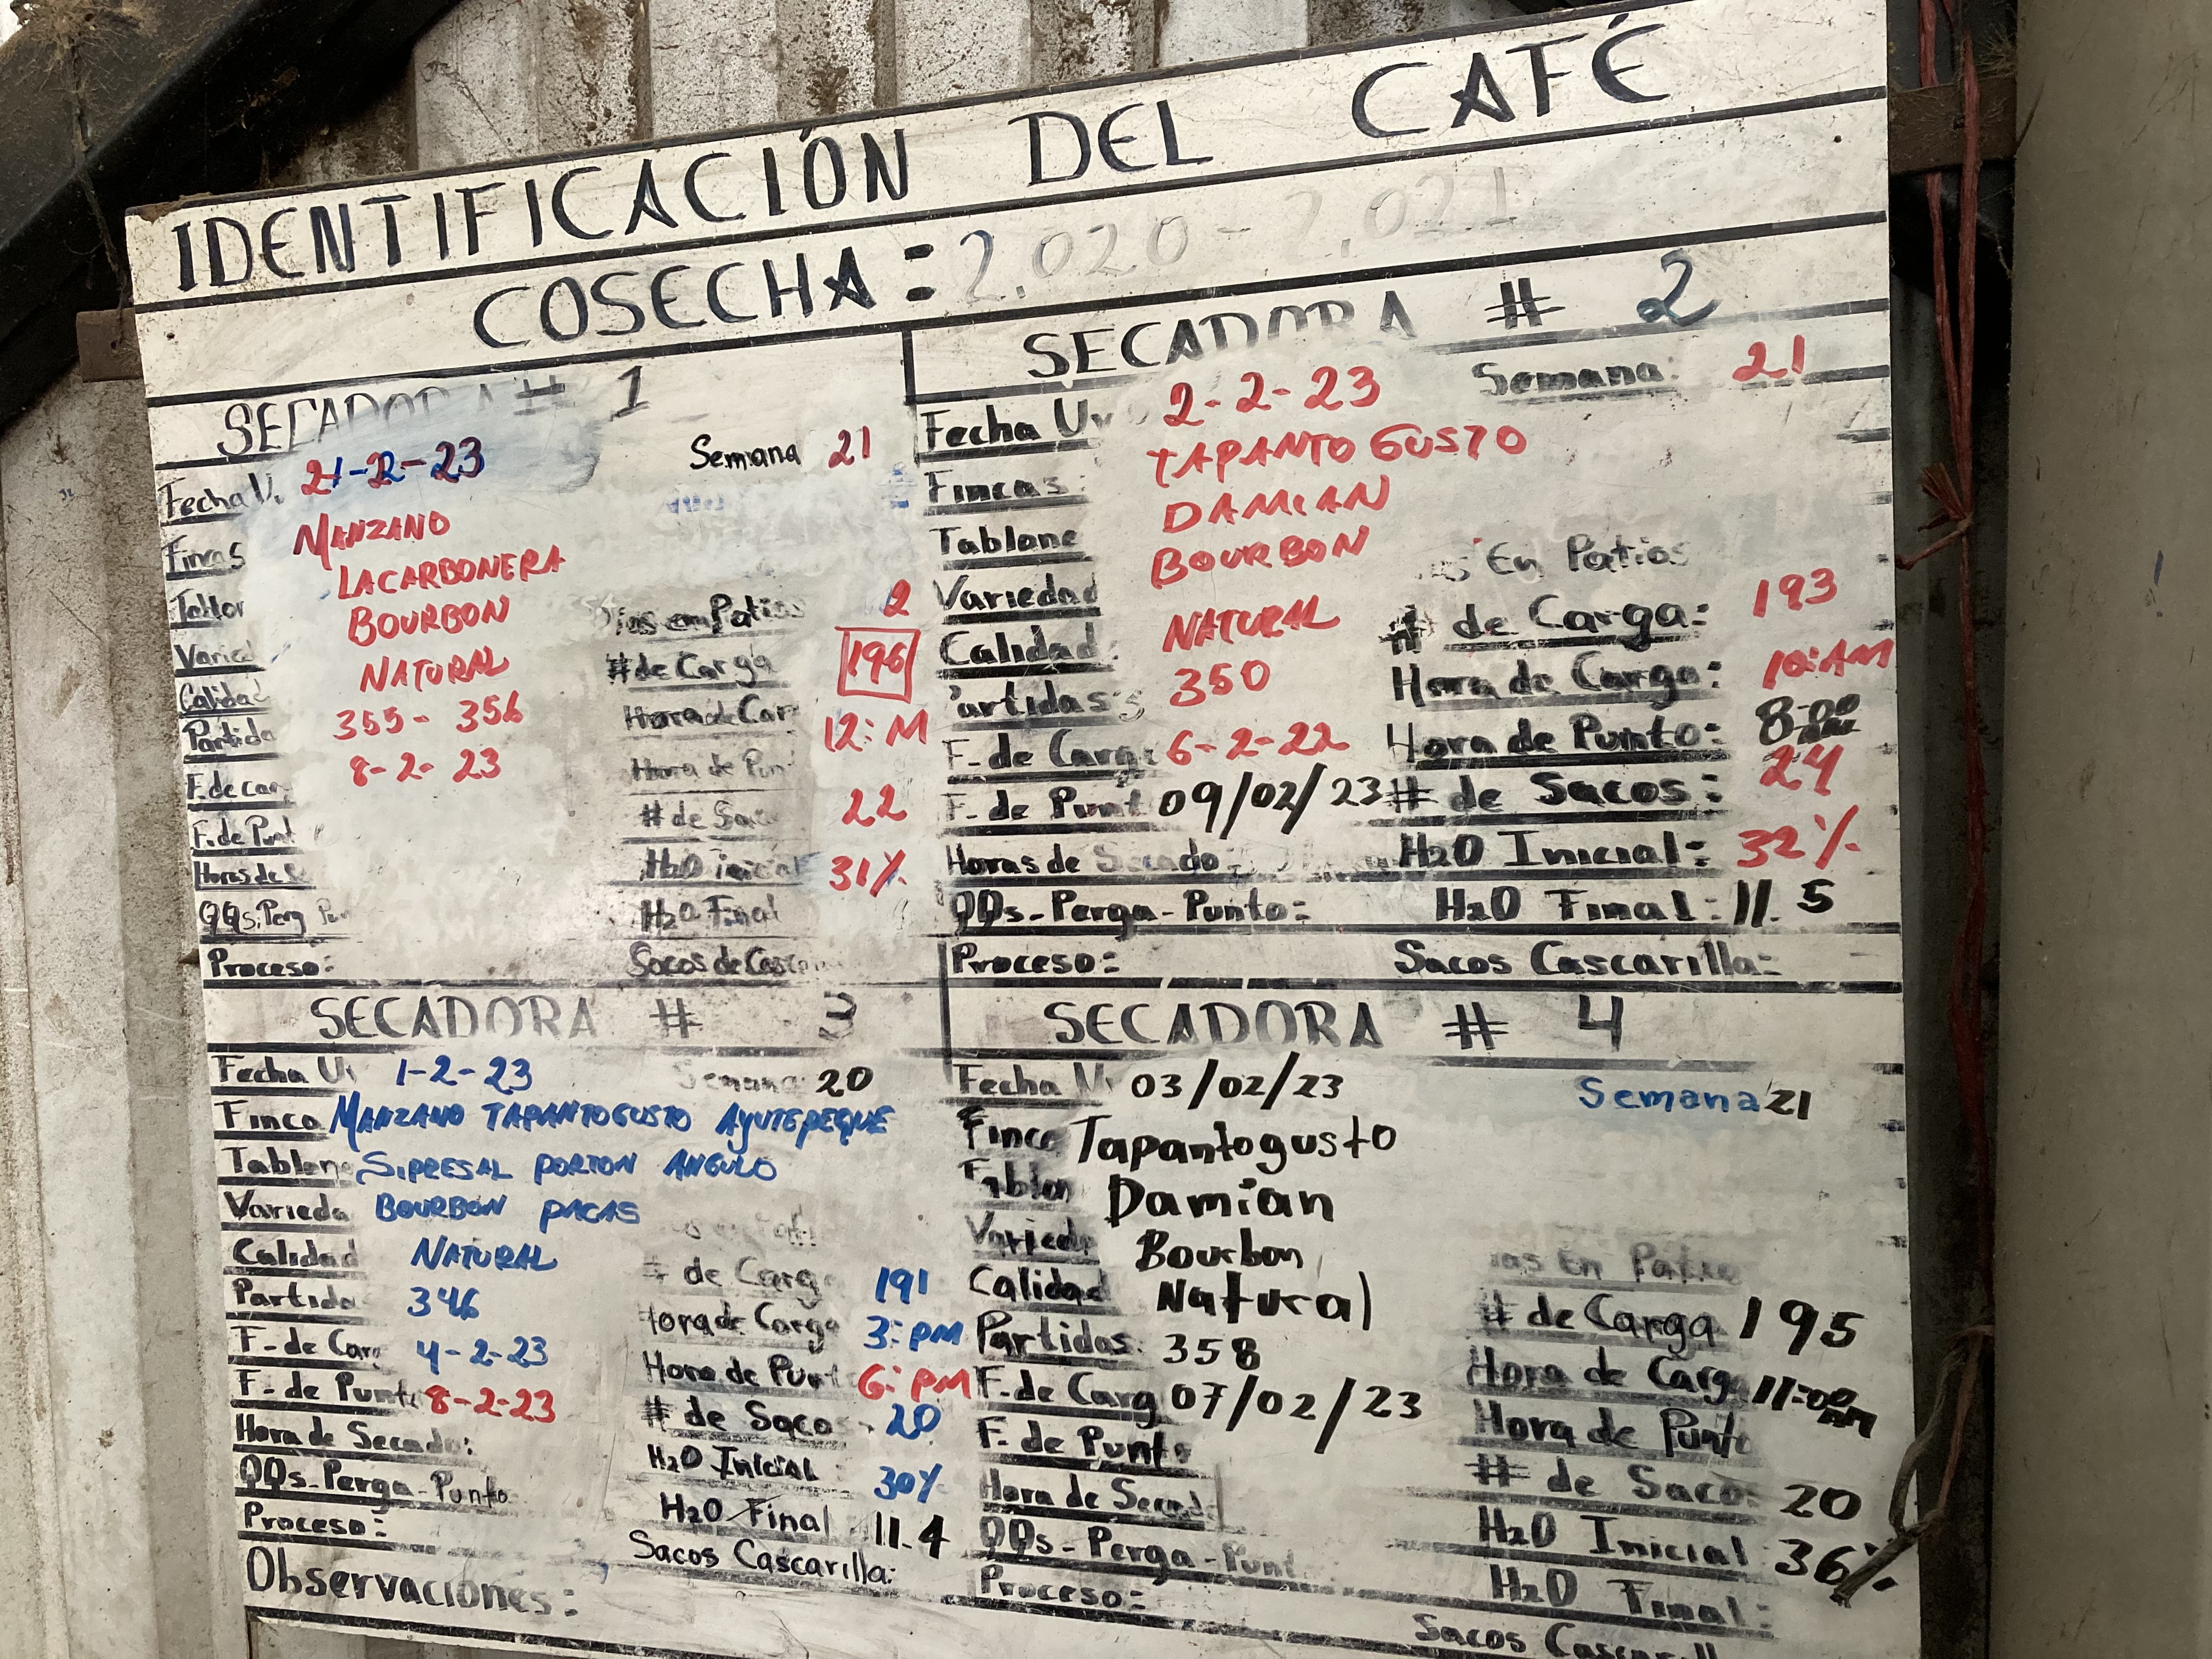 IDENTIFICACIÓN DEL CAFÉ
COSECHA: 2.020-2.021
SECADORA # 1
Fecha U. 21-2-23 Semana 21
Fincas MANZANO
Tablon LACARBONERA
Varied BOURBON Dias en Patios 2
Calidad NATURAL # de Carga 196
Partida 355-356 Hora de Car 12:M
F. de car 8-2-23 Hora de Pun
F. de Punt # de Sac 22
Horas de Se H2O inicial 31%
QQs. Perg Pun H2O Final
Proceso: Sacos de Casc
SECADORA # 2
Fecha Uv 2-2-23 Semana: 21
Fincas: TAPANTO GUSTO
Tablone DAMIAN
Variedad BOURBON En Patios
Calidad: NATURAL # de Carga: 193
Partidas: 350 Hora de Carga: 10:AM
F. de Carg: 6-2-22 Hora de Punto: 8:00
F. de Punt 09/02/23 # de Sacos: 24
Horas de Secado: H2O Inicial: 32%
QQs-Perga-Punto: H2O Final: 11.5
Proceso: Sacos Cascarilla:
SECADORA # 3
Fecha U 1-2-23 Semana: 20
Finca MANZANO TAPANTOGUSTO AYUTEPEQUE
Tablone SIPRESAL PORTON ANGULO
Varieda BOURBON PACAS
Calidad NATURAL # de Carga 191
Partida 346 Hora de Carga 3:PM
F. de Carg 4-2-23 Hora de Punt 6:PM
F. de Punt 8-2-23 # de Saco 20
Hora de Secado: H2O Inicial 30%
QQs-Perga-Punto H2O Final 11.4
Proceso: Sacos Cascarilla:
Observaciones:
SECADORA # 4
Fecha U 03/02/23 Semana 21
Finca Tapantogusto
Tablon Damian
Varieda Bourbon as En Patio
Calidad Natural # de Carga 195
Partidas: 358 Hora de Carga 11:00 AM
F. de Carg 07/02/23 Hora de Punto
F. de Punto # de Saco: 20
Hora de Secad H2O Inicial 36%
QQs-Perga-Punt H2O Final:
Proceso: Sacos Cascarill